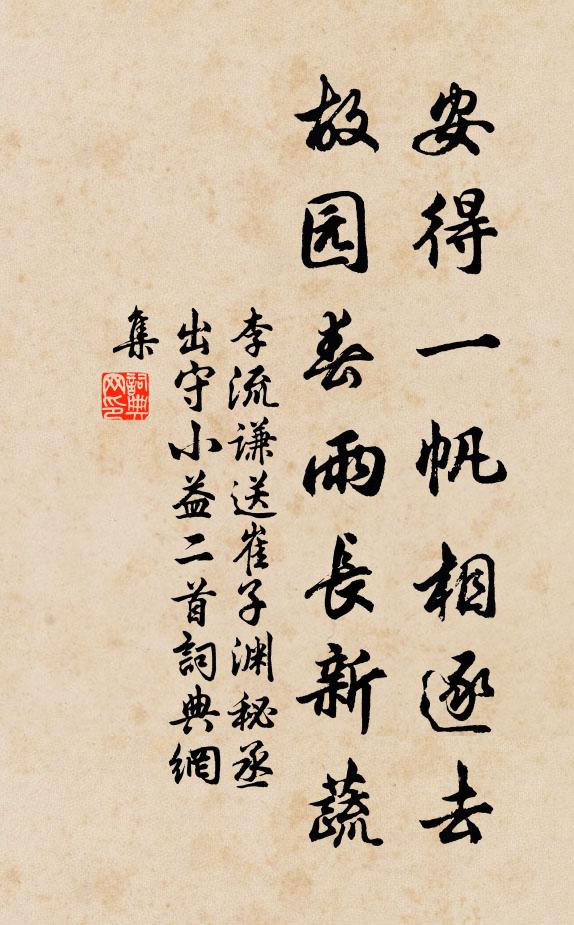 安得一帆相逐去
故园春雨長新蔬
李流谦送崔子渊秘丞
出守小益二首詞典網
集
詞典
网印